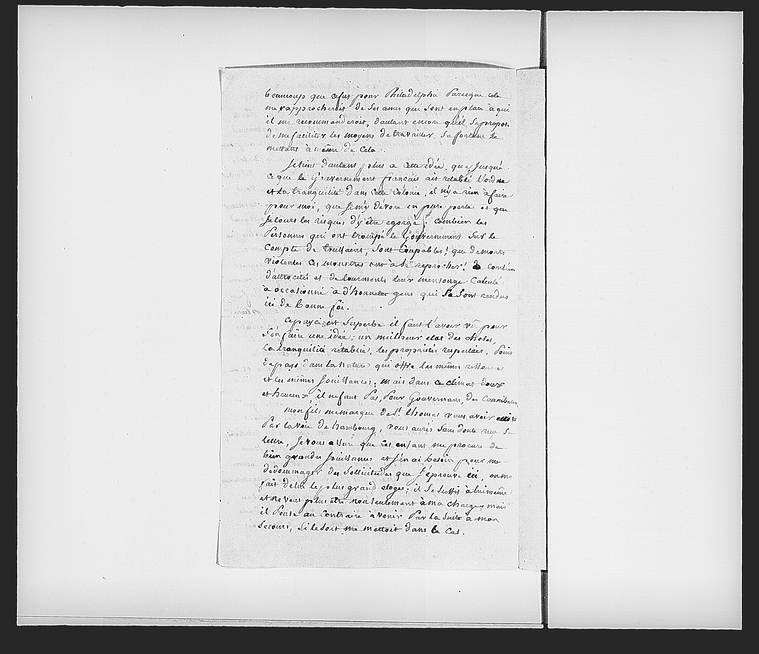 beaucoup que ce fut pour Philadelphia Parceque cela
me rapprocheroit de ses amis qui sont en place a qui
il me recommanderoit, d'autant encore qu'il se propose
de me faciliter les moyens de travailler, sa fortune le
mettant à même de Cela.
Je tiens d'autant plus a cette idée, que jusqu'a
ce que le Gouvernement français ait retabli l'ordre
et la tranquilité dans cette Colonie, il n'y a rien a faire
pour moi, que je m'y devore en pure perte et que
je cours les risques d'y être egorgé; combien les
Personnes qui ont trompé le Gouvernement sur le
compte de Toussaint, sont coupables! que de morts
violentes ces monstres ont à se reprocher! & combien
d'attrocités et de tourments leur mensonge calculé
a occasionné a d'honnetes gens qui se sont rendus
ici de bonne foi.
Ce pays ci est superbe il faut l'avoir vu pour
s'en faire une idée; un meilleur etat des choses,
la tranquilité rétablie, les propriétés respectées, Point
de pays dans la nature qui offre les mêmes ressources
et les mêmes jouissances; mais dans ce climat doux
et heureux il ne faut Pas, Pour Gouvernans, des Cannibales
mon fils me marque de St. Thomas vous avoir
Par la voie de hambourg, vous aurés sans doute reçu sa
lettre, Je vous assure que ces enfans me procure de
bien grandes jouissances et j'en ai besoin pour me
dedommager des sollicitudes que j'éprouve ici, on me
fait d'elle le plus grand eloge; il se suffit à lui même
et ne veut plus etre non seulement à ma charge, mais
il Pense au Contraire à venir Par la suite a mon
secours, si le sort me mettoit dans le Cas.